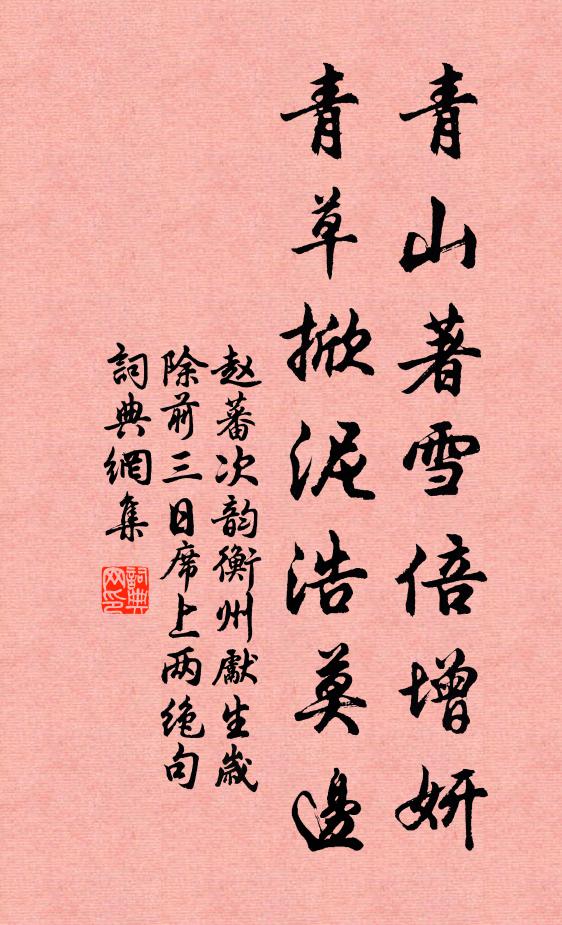 青山著雪倍增妍
青草掀泥浩莫邊
赵蕃次韵衡州獻生歲
除前三日席上两绝句
詞典網集
詞典
网印